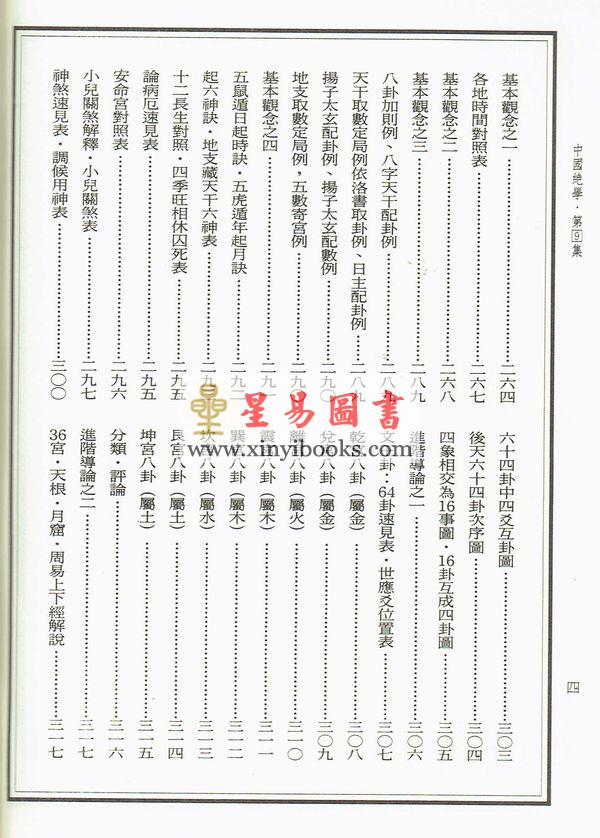 中國絕學．第9集
基本觀念之一………二六四
各地時間對照表………二六七
基本觀念之二………二六八
基本觀念之三………二八九
八卦加則例、八字天干配卦例………二八九
天干取數定局例依洛書取卦例、日主配卦例………二八九
揚子太玄配卦例、揚子太玄配數例………二九〇
地支取數定局例，五數寄宮例………二九〇
基本觀念之四………二九一
五鼠遁日起時訣．五虎遁年起月訣………二九二
起六神訣．地支藏天干六神表………二九
十二長生對照．四季旺相休囚死表………二九五
論病厄速見表………二九五
安命宮對照表………二九六
小兒關煞解釋．小兒關煞表………二九七
神煞速見表．調候用神表………三〇〇
六十四卦中四爻互卦圖………三〇三
後天六十四卦次序圖………三〇四
四象相交為16事圖．16卦互成四卦圖………三〇五
進階導論之一………三〇六
文王卦：64卦速見表．世應爻位置表………三〇七
乾宮八卦（屬金）………三〇八
兌宮八卦（屬金）………三〇九
離宮八卦（屬火）………三一〇
震宮八卦（屬木）………三一一
巽宮八卦（屬木）………三一二
坎宮八卦（屬水）………三一三
艮宮八卦（屬土）………三一四
坤宮八卦（屬土）………三一五
分類．評論………三一六
進階導論之二………三一七
36宮．天根．月窟．周易上下經解說………三一七
四
星易圖書
www.xinyibooks.com